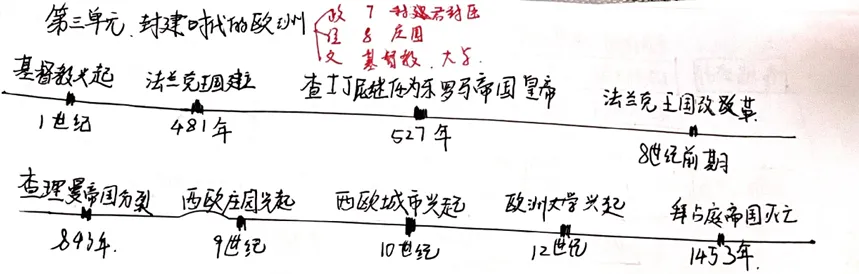 第三单元、封建时代的欧洲
政 7 封建君封臣
经 8 庄园
文 基督教、大学
基督教兴起 法兰克王国建立 查士丁尼继任为东罗马帝国皇帝 法兰克王国改革
1世纪 481年 527年 8世纪前期
查理曼帝国分裂 西欧庄园兴起 西欧城市兴起 欧洲大学兴起 拜占庭帝国灭亡
843年. 9世纪 10世纪 12世纪 1453年.